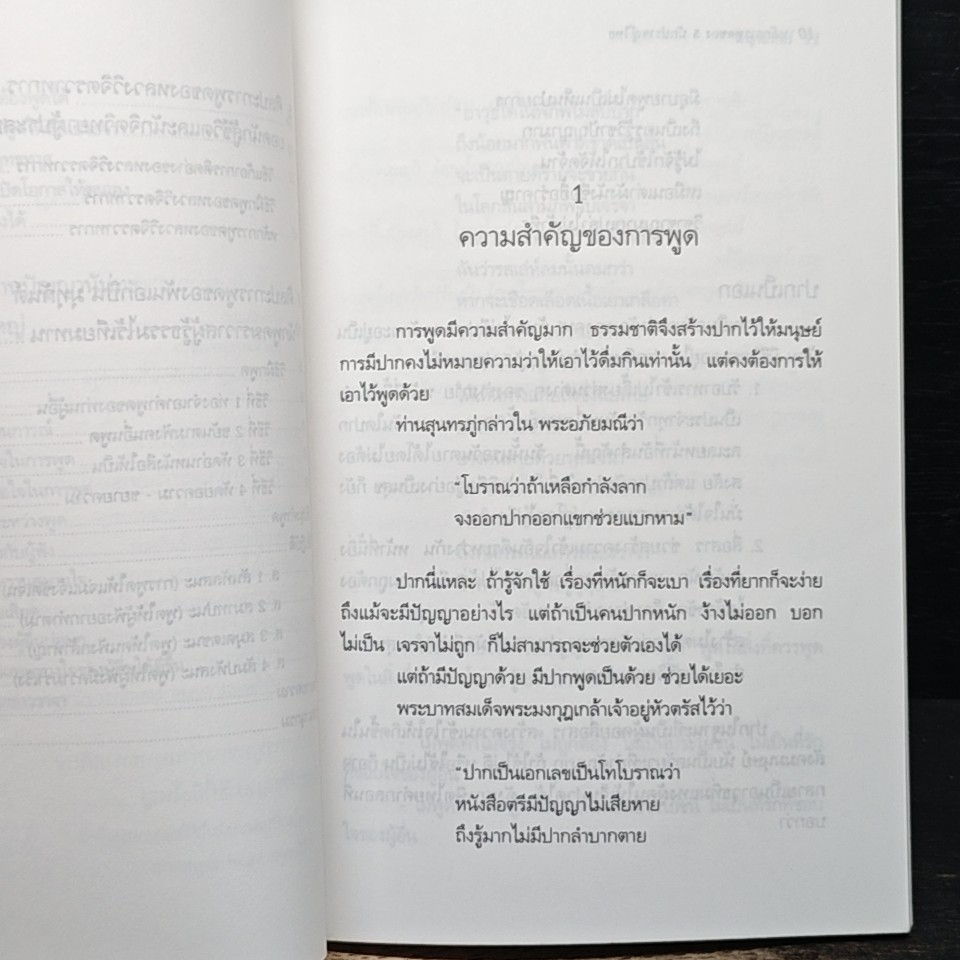 1
ความสำคัญของการพูด
การพูดมีความสำคัญมาก ธรรมชาติจึงสร้างปากไว้ให้มนุษย์
การมีปากคงไม่หมายความว่าให้เอาไว้ดื่มกินเท่านั้น แต่คงต้องการให้
เอาไว้พูดด้วย
ท่านสุนทรภู่กล่าวใน พระอภัยมณีว่า
"โบราณว่าถ้าเหลือกำลังลาก
จงออกปากออกแขกช่วยแบกหาม"
ปากนี่แหละ ถ้ารู้จักใช้ เรื่องที่หนักก็จะเบา เรื่องที่ยากก็จะง่าย
ถึงแม้จะมีปัญญาอย่างไร แต่ถ้าเป็นคนปากหนัก ง้างไม่ออก บอก
ไม่เป็น เจรจาไม่ถูก ก็ไม่สามารถจะช่วยตัวเองได้
แต่ถ้ามีปัญญาด้วย มีปากพูดเป็นด้วย ช่วยได้เยอะ
พระบาทสมเด็จพระมงกุฎเกล้าเจ้าอยู่หัวตรัสไว้ว่า
"ปากเป็นเอกเลขเป็นโทโบราณว่า
หนังสือตรีมีปัญญาไม่เสียหาย
ถึงรู้มากไม่มีปากลำบากตาย